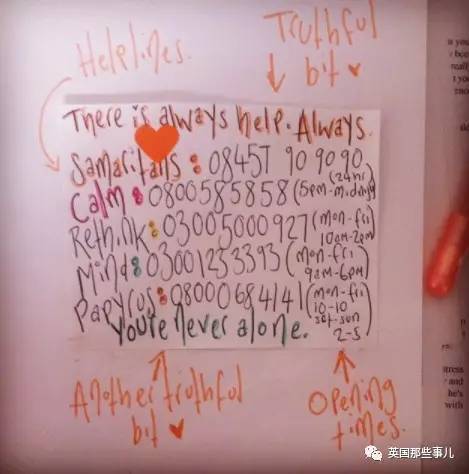 Helplines.
Truthful
bit
There is always help. Always.
Samaritans: 08457 90 90 90
(24hr)
Calm: 0800585858 (5pm-midnight)
Rethink: 03005000927 (mon-fri)
10am-2pm
Mind: 03001233393 (mon-fri)
9am-6pm
Papyrus: 08000684141 (mon-fri
10-10
sat-sun
2-5)
You're never alone.
Another truthful
bit
Opening
times.
really
stress
and
he's
with
英国那些事儿